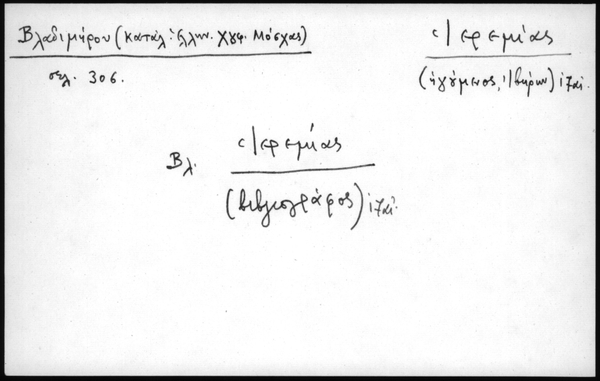 Βλαδιμήρου (Κατάλ. Ἑλλην. Χγφ. Μόσχας)
σελ. 306.
Ἱερεμίας
(ἡγούμενος, Ἰβήρων) ιζʹ αἰ.
Βλ. Ἱερεμίας
(βιβλιογράφος) ιζʹ αἰ.